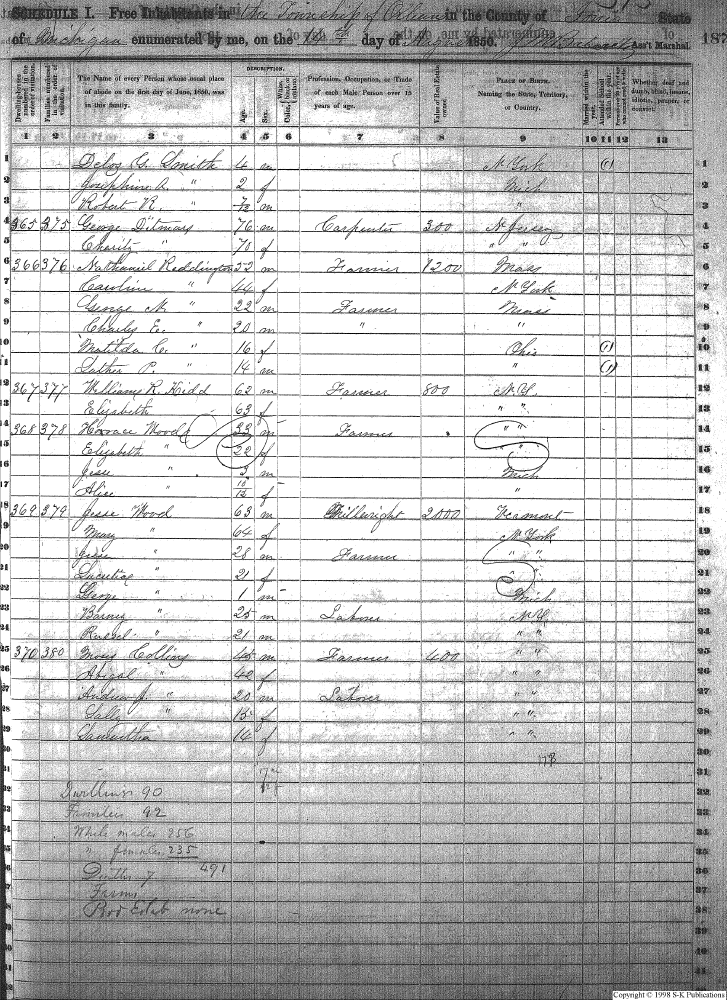 SCHEDULE I. Free Inhabitants in the Township of Orleans in the County of Ionia State
of Michigan enumerated by me, on the day of August 1850. Ass't Marshal. 187
Dwelling-houses numbered in the order of visitation.
Families numbered in the order of visitation.
The Name of every Person whose usual place of abode on the first day of June, 1850, was in this family.
DESCRIPTION.
Age.
Sex.
Color
Profession, Occupation, or Trade of each Male Person over 15 years of age.
Value of Real Estate owned
PLACE OF BIRTH. Naming the State, Territory, or Country.
Married within the year.
Whether deaf and dumb, blind, insane, idiotic, pauper, or convict.
1 2 3 4 5 6 7 8 9 10 11 12 13
1 Delos G. Smith 4 m N. York 1 1
2 Josephine A. " 2 f Mich 2
3 Robert R. " m " 3
4 365 375 George Ditmars 76 m Carpenter 300 N Jersey 4
5 Charity " 70 f " " 5
6 366 376 Nathaniel Reddington 52 m Farmer 1200 Mass 6
7 Caroline " 44 f N. York 7
8 George N. " 22 m Farmer Mass 8
9 Charles E. " 20 m " " 9
10 Matilda C. " 16 f Ohio 1 10
11 Luther P. " 14 m " 1 11
12 367 377 William R. Kidd 62 m Farmer 800 N.Y. 12
13 Elizabeth 63 f " " 13
14 368 378 Horace Wood 33 m Farmer " " 14
15 Elizabeth " 22 f " " 15
16 Jesse " 3 m Mich 16
17 Alice " f " 17
18 369 379 Jesse Wood 63 m Millwright 2000 Vermont 18
19 Mary " 64 f N. York 19
20 Jesse " 28 m Farmer " " 20
21 Lucretia " 21 f " " 21
22 George " 1 m Mich 22
23 Barney " 25 m Laborer N.Y. 23
24 Russel " 21 m " " 24
25 370 380 Moses Collins 45 m Farmer 400 " " 25
26 Abigal " 40 f " " 26
27 Andrew J. " 20 m Laborer " " 27
28 Sally " 15 f " " 28
29 Samantha 14 f " " 29
30 30
31 31
32 Dwellings 90 32
33 Families 92 33
34 White males 256 34
35 " females 235 35
36 Deaths 7 491 36
37 Farms 37
38 Prod Estab none 38
39 39
40 40
41 41
42 42
Copyright © 1998 S-K Publications